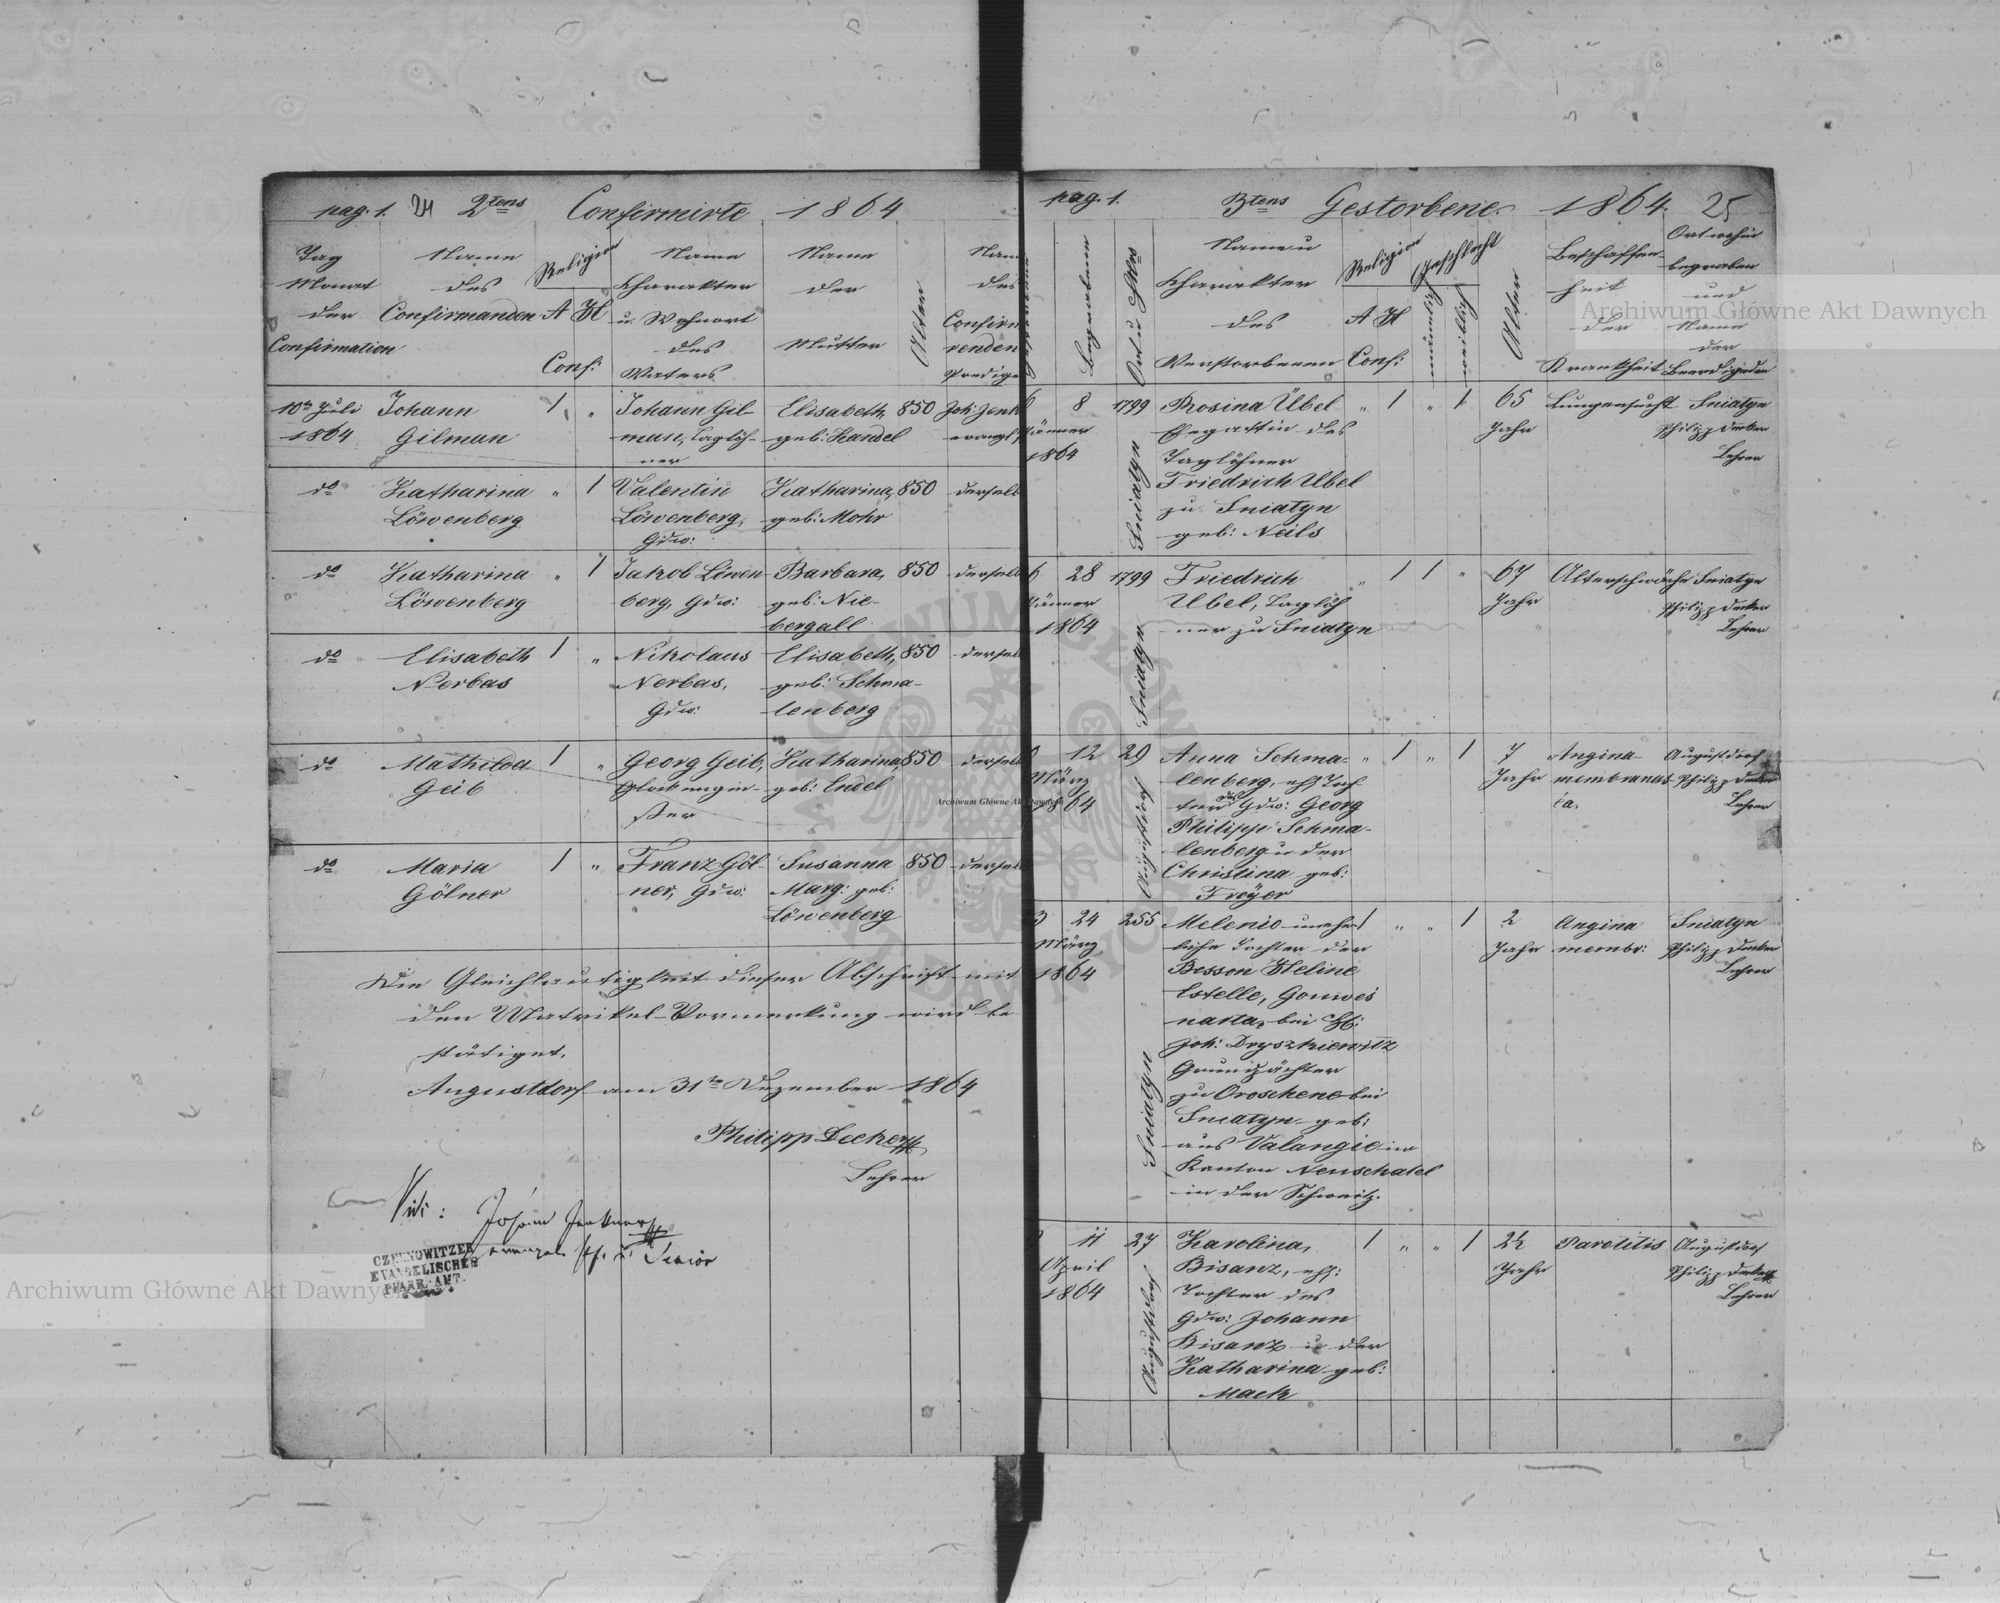 pag. 1. 24 2tens Confirmirte 1864
Tag Monat der Confirmation
Name des Confirmanden
Religion A H Conf:
Name Charakter u. Wohnort des Vaters
Name der Mutter
Alter
Nam des Confirm renden Predige
10ten Juli 1864
Johann Gilman
1 "
Johann Gil-
man, Taglöh-
ner
Elisabeth,
geb: Handel
850
Joh: Jenk
evangl:
do
Katharina
Löwenberg
" 1
Valentin
Löwenberg,
Gdw:
Katharina,
geb: Mohr
850
derselb
do
Katharina
Löwenberg
" 1
Jakob Löwen-
berg, Gdw:
Barbara,
geb: Nie-
bergall
850
derselb
do
Elisabeth
Nerbas
1 "
Nikolaus
Nerbas,
Gdw:
Elisabeth,
geb: Schma-
lenberg
850
derselb
do
Mathilda
Geib
1 "
Georg Geib,
Glockengie-
ßer
Katharina,
geb: Endel
850
derselb
do
Maria
Gölner
1 "
Franz Göl-
ner, Gdw:
Susanna
Marg: geb:
Löwenberg
850
derselb
Die Gleichlautigkeit dieser Abschrift mit
den Matrikel-Vormerkung wird be
stätiget.
Augustdorf am 31ten Dezember 1864
Philipp Decker
Lehrer
Vidi:
Johann Jenkner
evangel. Senior
CZERNOWITZER
EVANGELISCHES
PFARR-AMT.
pag. 1. 3tens Gestorbene. 1864. 25
Begrabene
Ort u HNo
Name u
Charakter
des
Verstorbenen
Religion
A H
Conf:
Geschlecht
männlich
weiblich
Alter
Beschaffen-
heit
der
Krankheit
Ort wohin
begraben
und
Name
der
Beerdigenden
6 8
Jänner
1864
1799
Sniatyn
Rosina Übel
Ehegattin des
Taglöhner
Friedrich Ubel
zu Sniatyn
geb: Neils
" 1 " 1
65
Jahr
Lungensucht
Sniatyn
Philipp Decker
Lehrer
6 28
Jänner
1864
1799
Sniatyn
Friedrich
Ubel, Taglöh
ner zu Sniatyn
" 1 1 "
67
Jahr
Alterschwäche
Sniatyn
Philipp Decker
Lehrer
12
März
1864
29
Augustdorf
Anna Schma-
lenberg, ehl Toch-
ter des Gdw: Georg
Philipp Schma-
lenberg u der
Christina geb:
Freyer
" 1 " 1
7
Jahr
Angina
membranac
ea.
Augustdorf
Philipp Decker
Lehrer
3 24
März
1864
255
Sniatyn
Melenie unehe
liche Tochter der
Besson Heline
Estelle,
bei H:
Joh: Dryszkiewitz
Grundpächter
zu Oroschene bei
Sniatyn geb:
aus Valangie im
Kanton Neuschatel
in der Schweitz.
1 " " 1
2
Jahr
Angina
membr:
Sniatyn
Philipp Decker
Lehrer
11
April
1864
27
Augustdorf
Karolina,
Bisanz, ehl:
Tochter des
Gdw: Johann
Bisanz u der
Katharina geb:
Mack
1 " " 1
2½
Jahr
Parotitis
Augustdorf
Philipp Decker
Lehrer
Archiwum Główne Akt Dawnych
Archiwum Główne Akt Dawnych
Archiwum Główne Akt Dawnych